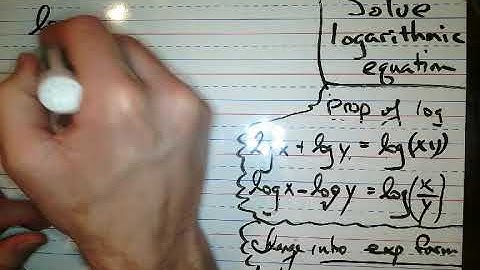 lo
Solve
logarithmic
equation
Prop of log
log x + log y = log(xy)
log x - log y = log(x/y)
Change into exp form